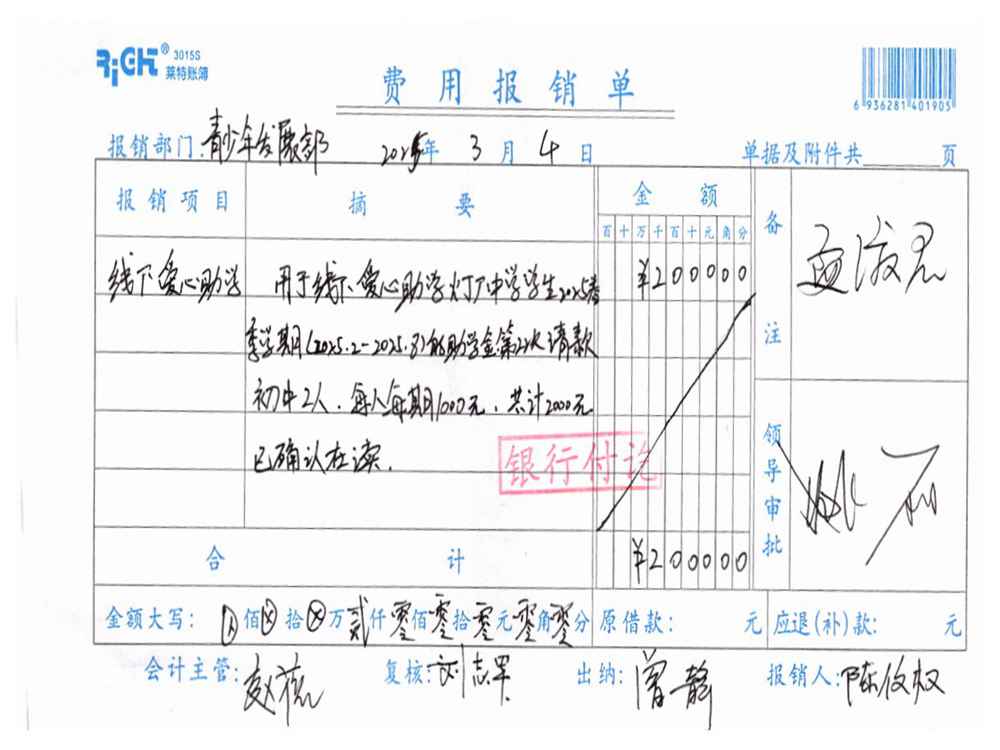 RiCH® 3015S
莱特账簿
费用报销单
6 936281 401905
报销部门:青少年发展部 2025年3月4日 单据及附件共 页
报销项目 摘要 金额 备注
百十万千百十元角分
线下爱心助学 用于线下爱心助学灯厂中学学生2025春 ¥200000
季学期(2025.2-2025.8)的助学金第22次请款
初中2人,每人每期1000元,共计2000元
已确认在读.
银行付讫
领导审批
合计 ¥200000
金额大写: 佰 拾 万贰仟零佰零拾零元零角零分 原借款: 元 应退(补)款: 元
会计主管: 复核:刘志军 出纳:曾静 报销人:陈俊权